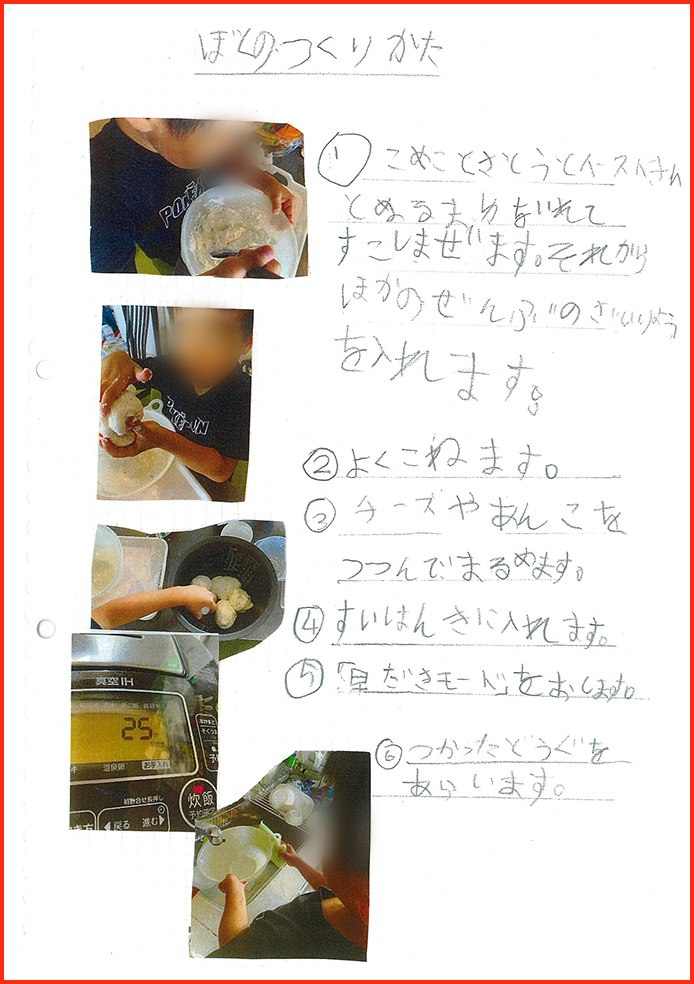 ぱんのつくりかた
① こめことさとうとイーストきん
とぬるまゆをいれて
すこしまぜます。それから
ほかのぜんぶのざいりょう
を入れます。
② よくこねます。
③ チーズやあんこを
つつんでまるめます。
④ すいはんきに入れます。
⑤ 「早だきモード」をおします。
⑥ つかったどうぐを
あらいます。
POKÉ
POKÉMON
真空IH
25分
温泉卵
お手入れ
炊飯
予約確定
戻る
進む